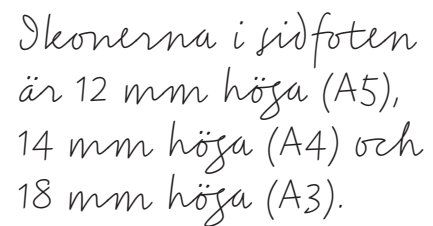 Ikonerna i sidfoten
är 12 mm höga (A5),
14 mm höga (A4) och
18 mm höga (A3).